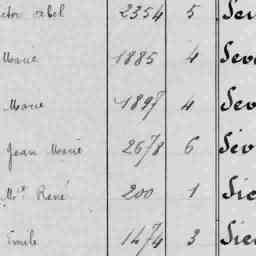 ctor abel 2354 5 Sev
Marie 1885 4 Sev
Marie 1897 4 Sev
Jean Marie 2678 6 Siv
René 200 1 Sie
Emile 1474 3 Sie